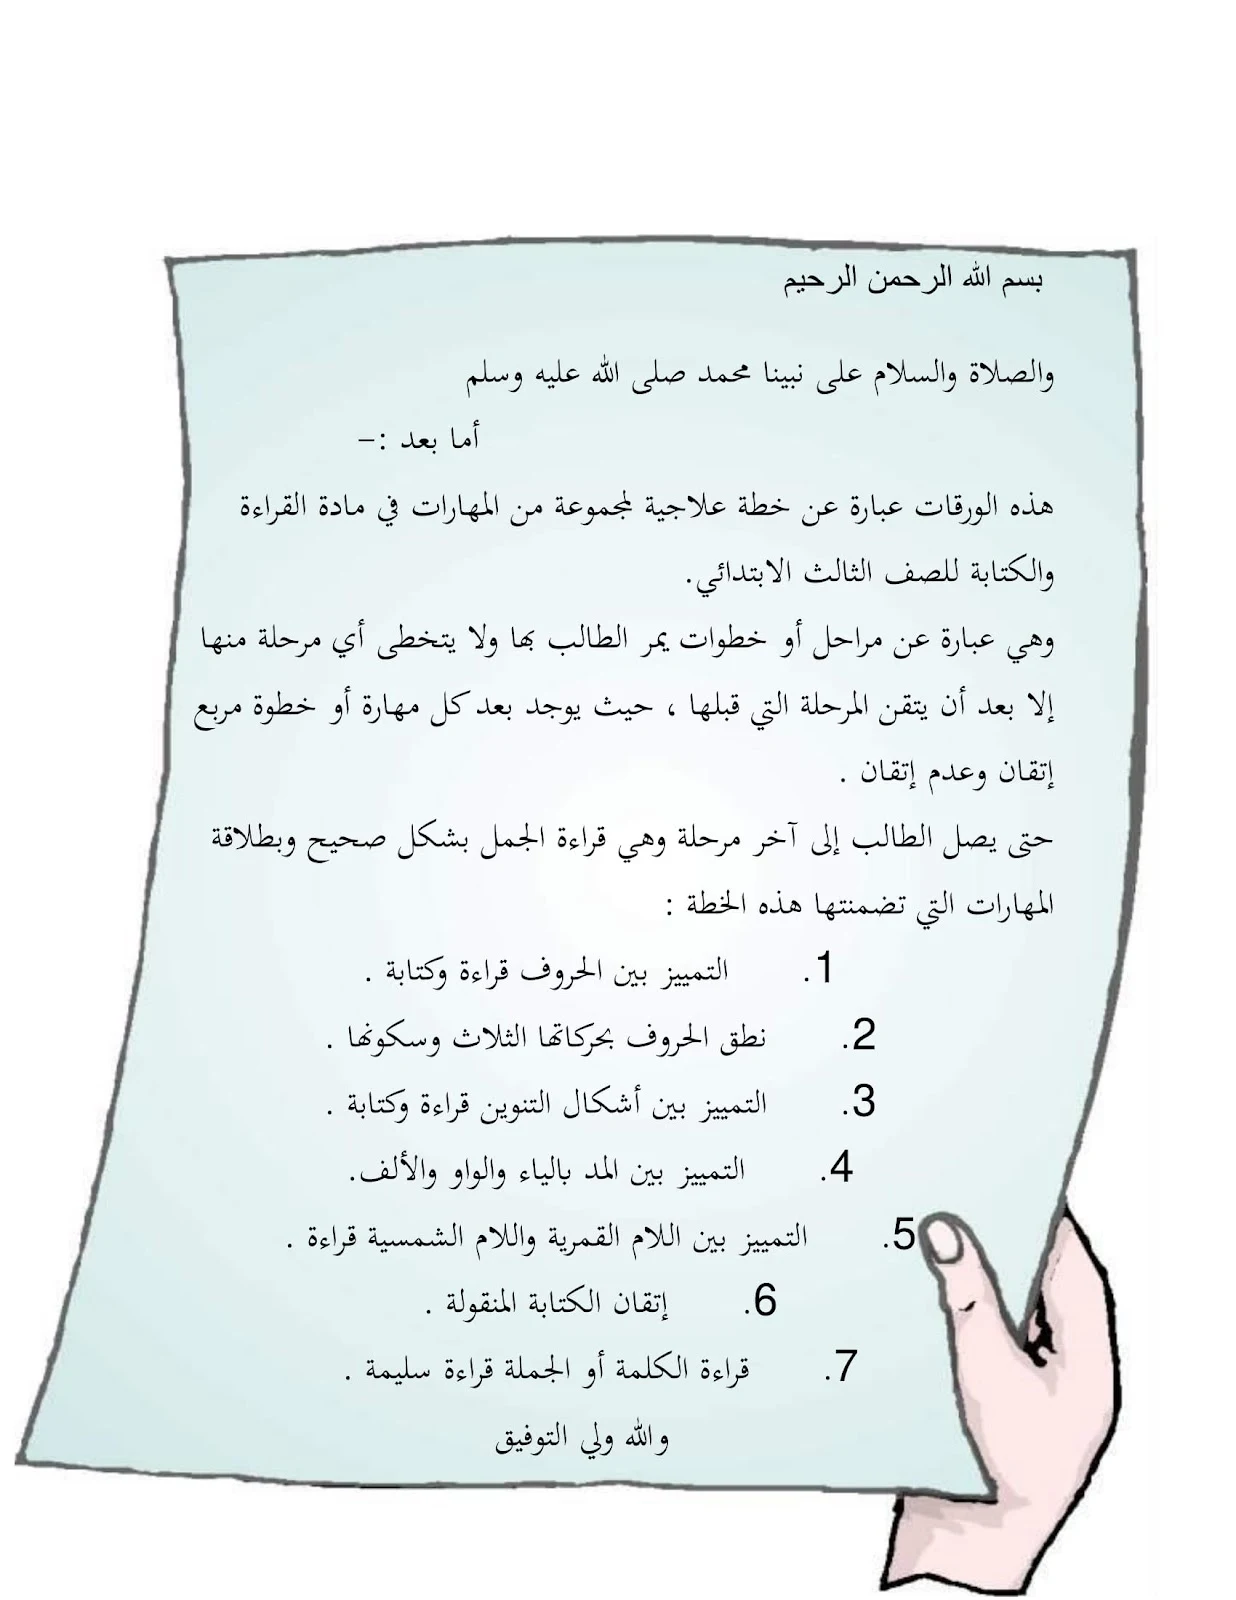 بسم الله الرحمن الرحيم
والصلاة والسلام على نبينا محمد صلى الله عليه وسلم
أما بعد :-
هذه الورقات عبارة عن خطة علاجية لمجموعة من المهارات في مادة القراءة
والكتابة للصف الثالث الابتدائي.
وهي عبارة عن مراحل أو خطوات يمر الطالب بها ولا يتخطى أي مرحلة منها
إلا بعد أن يتقن المرحلة التي قبلها ، حيث يوجد بعد كل مهارة أو خطوة مربع
إتقان وعدم إتقان .
حتى يصل الطالب إلى آخر مرحلة وهي قراءة الجمل بشكل صحيح وبطلاقة
المهارات التي تضمنتها هذه الخطة :
1. التمييز بين الحروف قراءة وكتابة .
2. نطق الحروف بحركاتها الثلاث وسكونها .
3. التمييز بين أشكال التنوين قراءة وكتابة .
4. التمييز بين المد بالياء والواو والألف.
5. التمييز بين اللام القمرية واللام الشمسية قراءة .
6. إتقان الكتابة المنقولة .
7. قراءة الكلمة أو الجملة قراءة سليمة .
والله ولي التوفيق